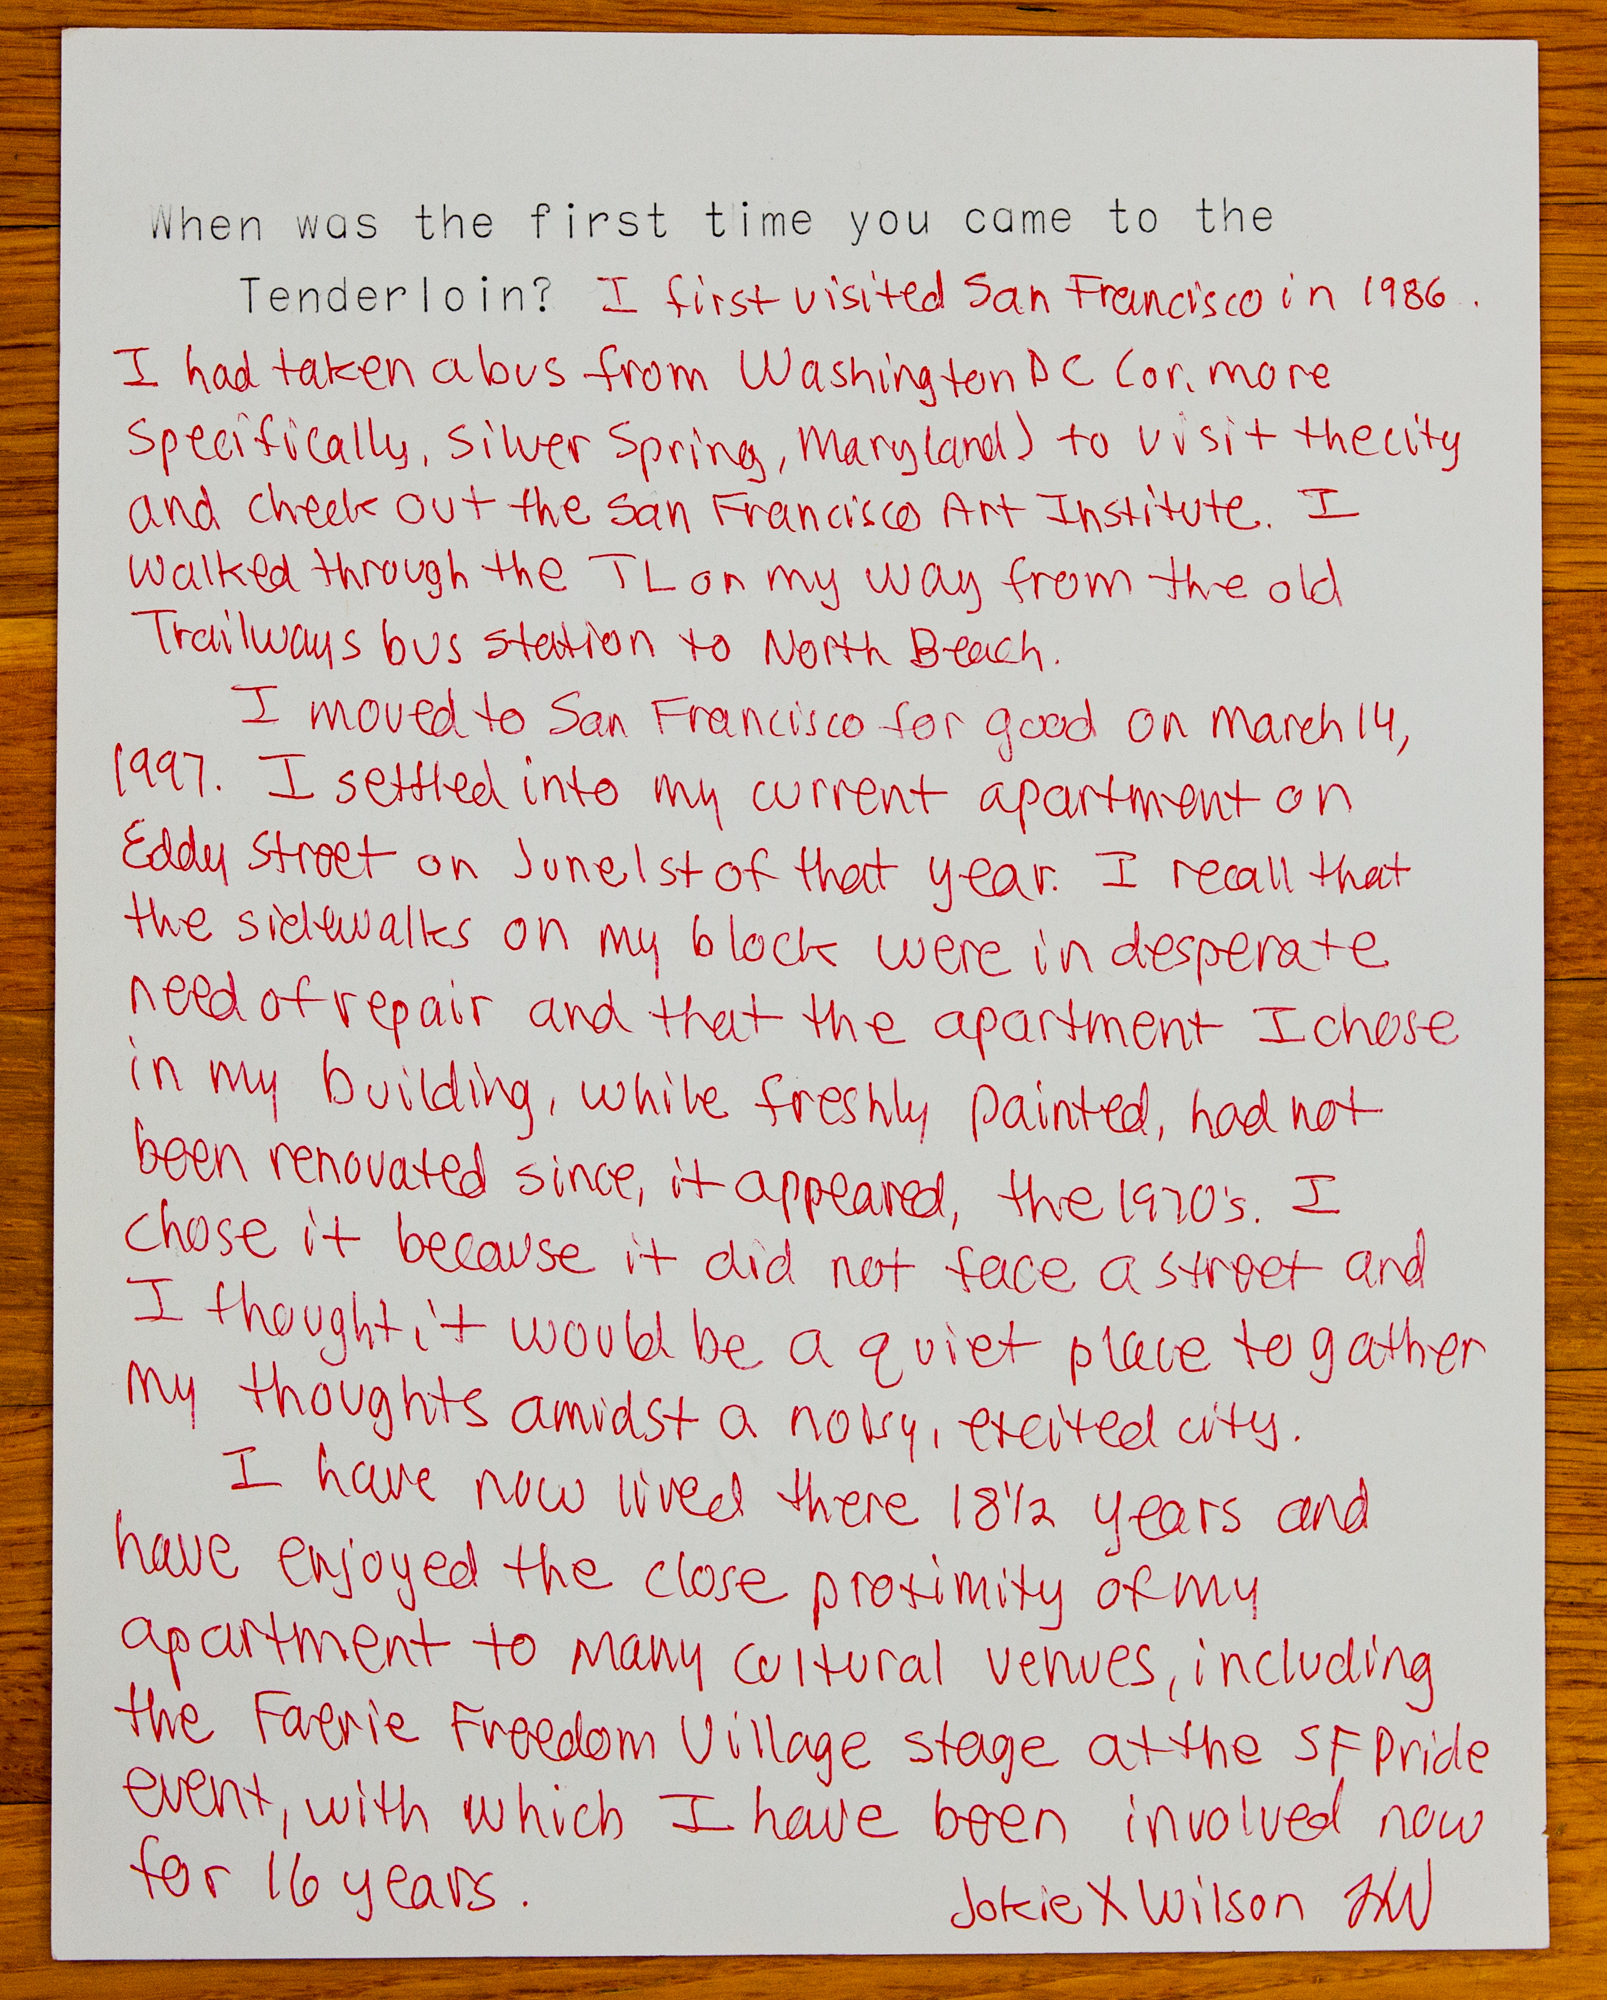 When was the first time you came to the
Tenderloin? I first visited San Francisco in 1986.
I had taken a bus from Washington DC (or, more
specifically, Silver Spring, Maryland) to visit the city
and check out the San Francisco Art Institute. I
walked through the TL on my way from the old
Trailways bus station to North Beach.
I moved to San Francisco for good on March 14,
1997. I settled into my current apartment on
Eddy Street on June 1st of that year. I recall that
the sidewalks on my block were in desperate
need of repair and that the apartment I chose
in my building, while freshly painted, had not
been renovated since, it appeared, the 1970's. I
chose it because it did not face a street and
I thought it would be a quiet place to gather
my thoughts amidst a noisy, excited city.
I have now lived there 18 1/2 years and
have enjoyed the close proximity of my
apartment to many cultural venues, including
the Faerie Freedom Village stage at the SF Pride
event, with which I have been involved now
for 16 years. Jokie X Wilson JXW